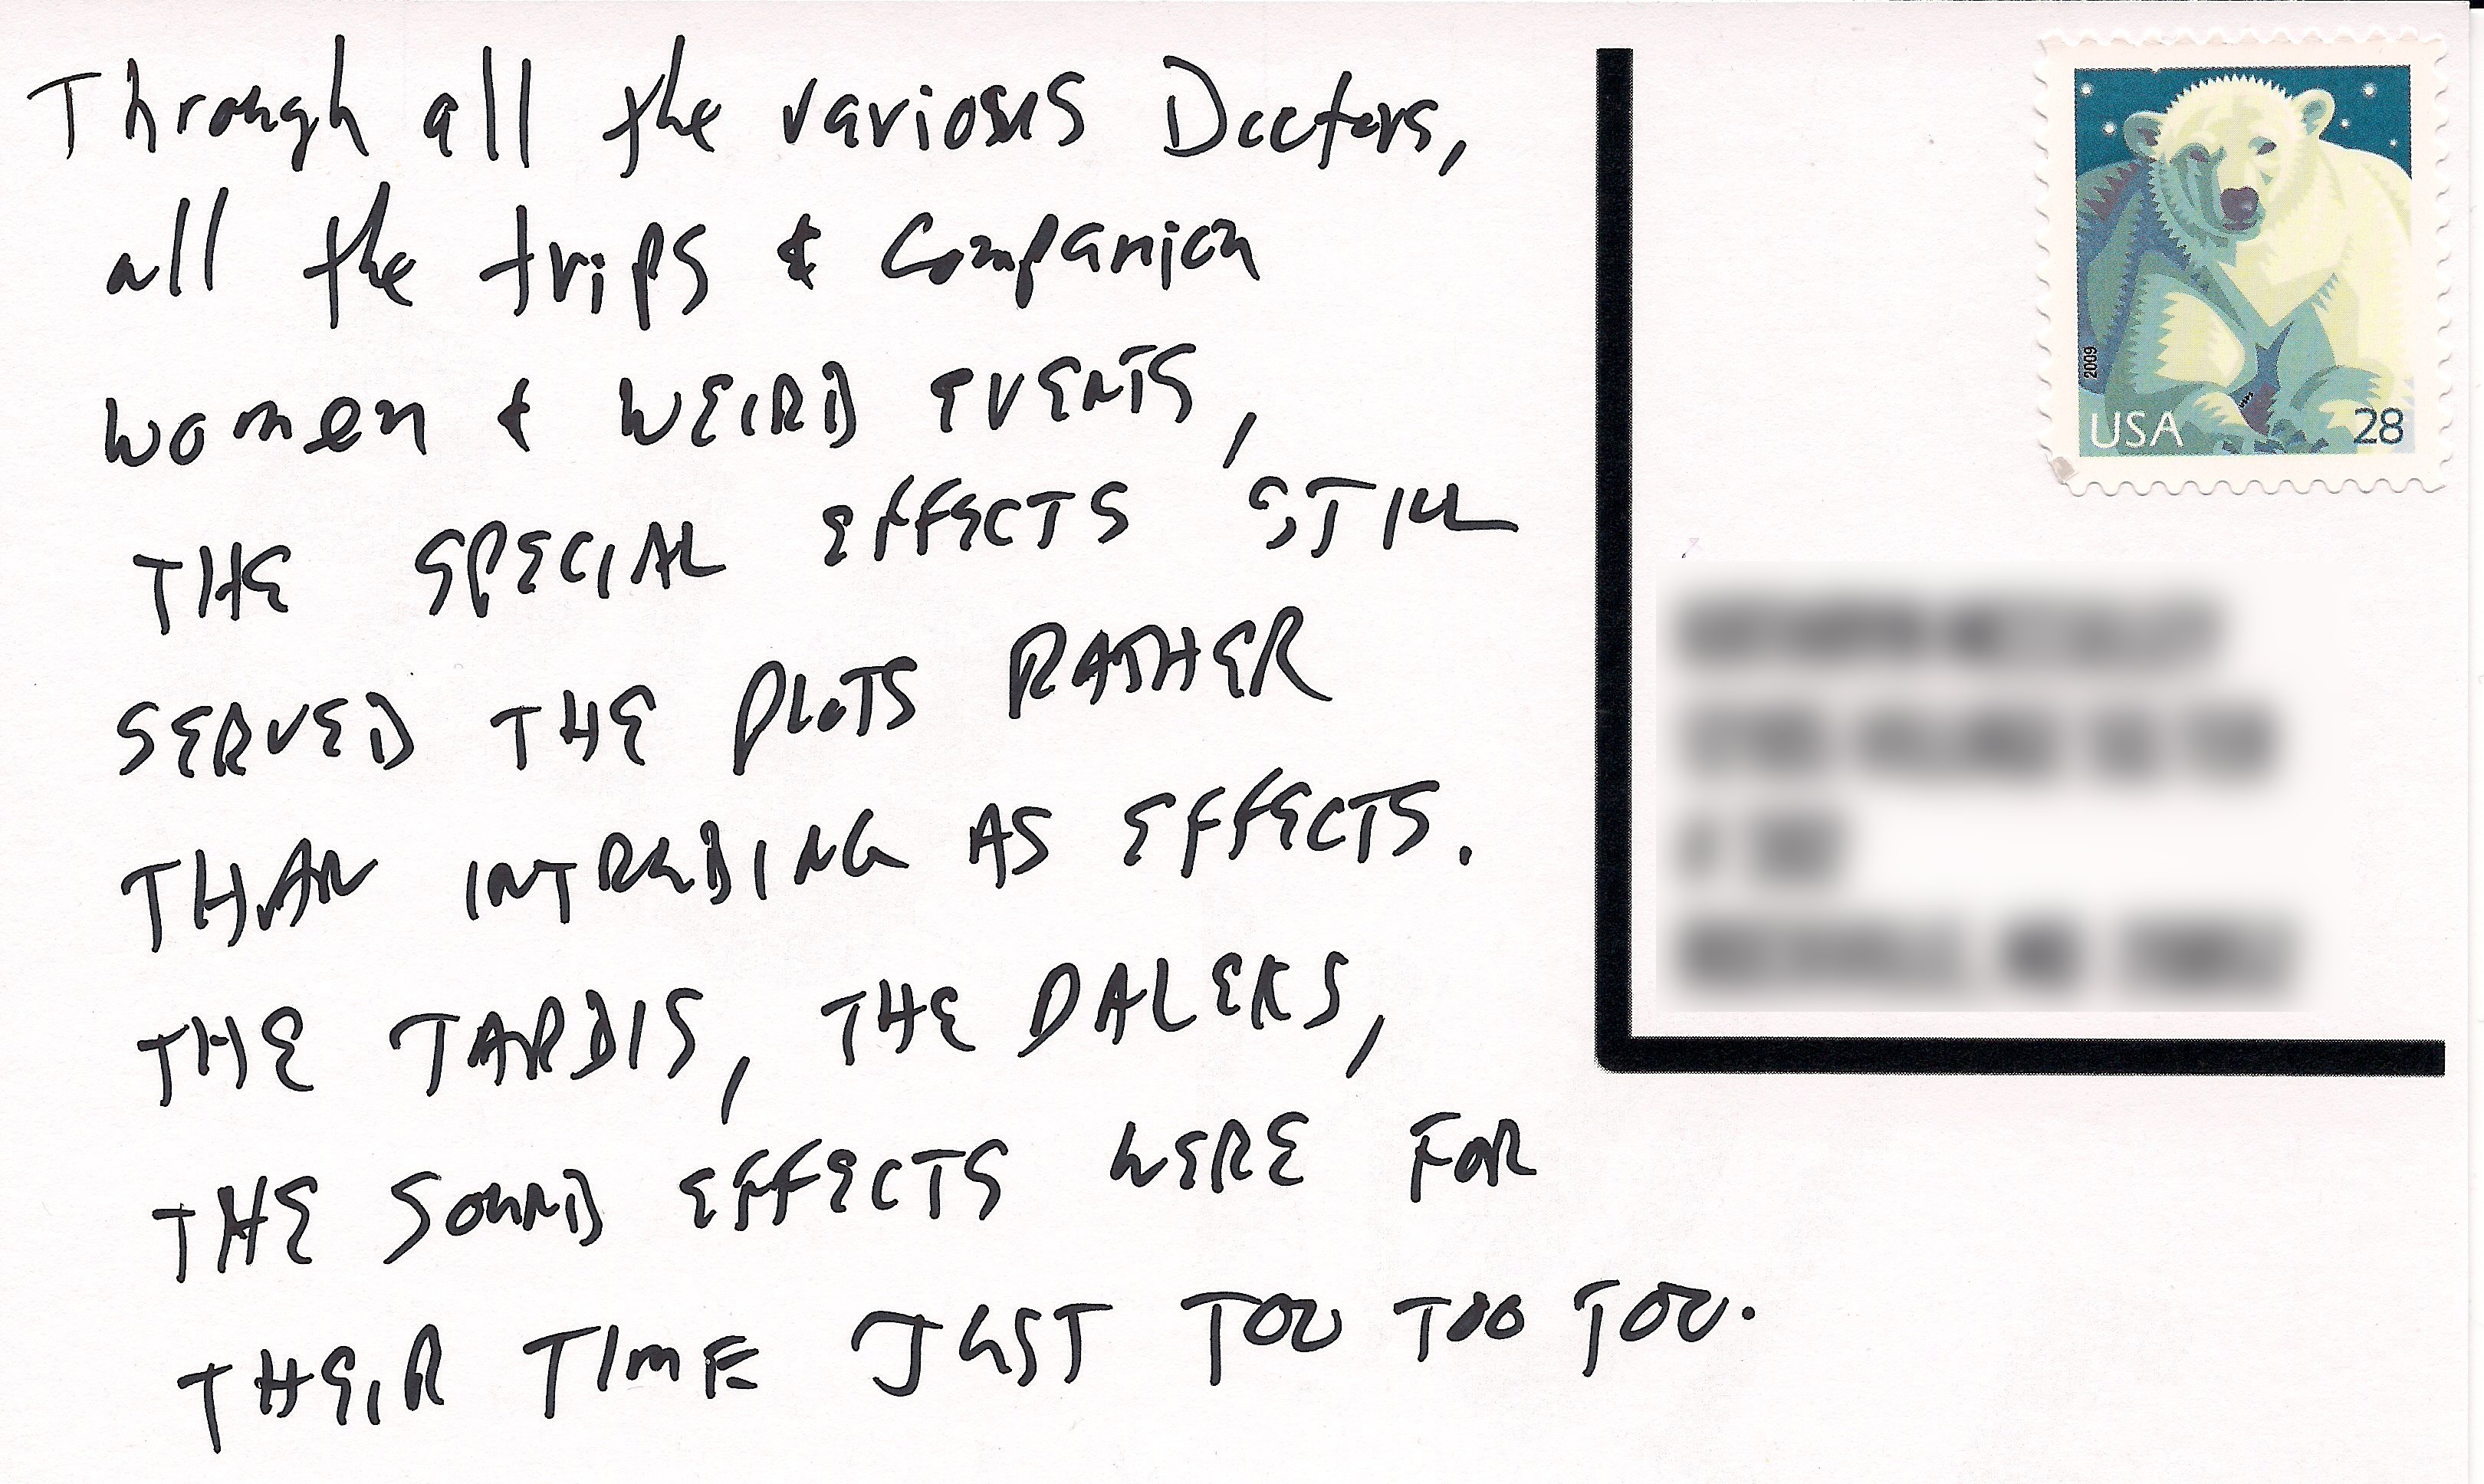 Through all the various Doctors,
all the trips & Companion
women & WEIRD EVENTS,
THE SPECIAL EFFECTS STILL
SERVED THE PLOTS RATHER
THAN INTRUDING AS EFFECTS.
THE TARDIS, THE DALEKS,
THE SOUND EFFECTS WERE FOR
THEIR TIME JUST TOO TOO TOO.
2009
USA 28